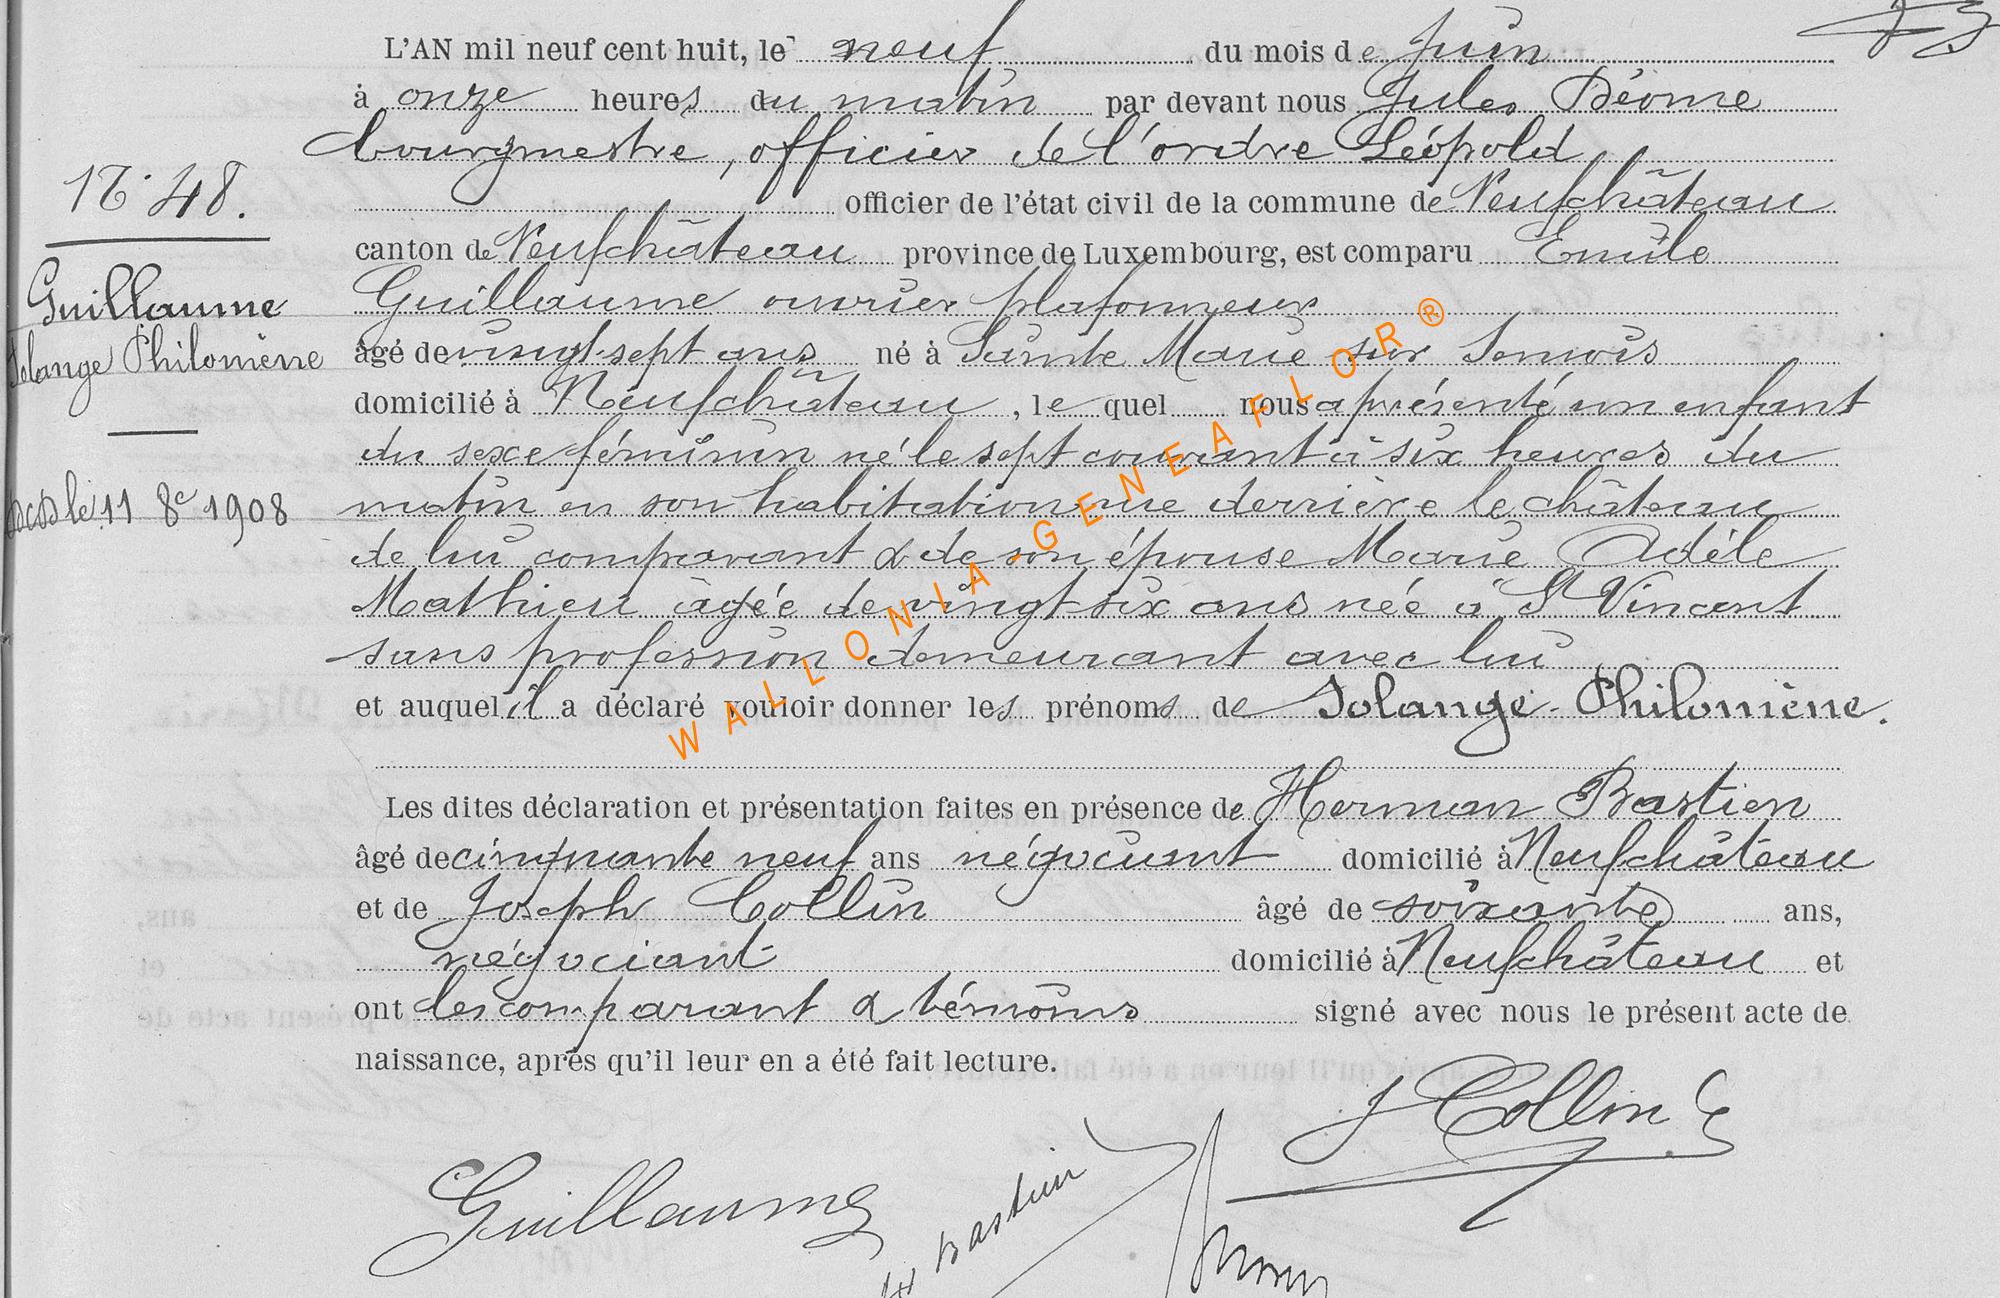 L'AN mil neuf cent huit, le neuf du mois de juin
à onze heures du matin par devant nous Jules Déome
bourgmestre, officier de l'ordre Léopold
officier de l'état civil de la commune de Neufchâteau
canton de Neufchâteau province de Luxembourg, est comparu Emile
Guillaume ouvrier plafonneur
âgé de vingt-sept ans né à Sainte Marie sur Semois
domicilié à Neufchâteau, le quel nous a présenté un enfant
du sexe féminin né le sept courant à six heures du
matin en son habitation rue derrière le château
de lui comparant & de son épouse Marie Adèle
Mathieu âgée de vingt-six ans née à St Vincent
sans profession demeurant avec lui
et auquel il a déclaré vouloir donner les prénoms de Solange-Philomène.
Les dites déclaration et présentation faites en présence de Herman Bastien
âgé de cinquante neuf ans négociant domicilié à Neufchâteau
et de Joseph Collin âgé de soixante ans,
négociant domicilié à Neufchâteau et
ont les comparant & témoins signé avec nous le présent acte de
naissance, après qu'il leur en a été fait lecture.
No 48.
Guillaume
Solange Philomène
le 11 8e 1908
J Collin
Guillaume
Bastien
WALLONIA-GENEAFLOR®